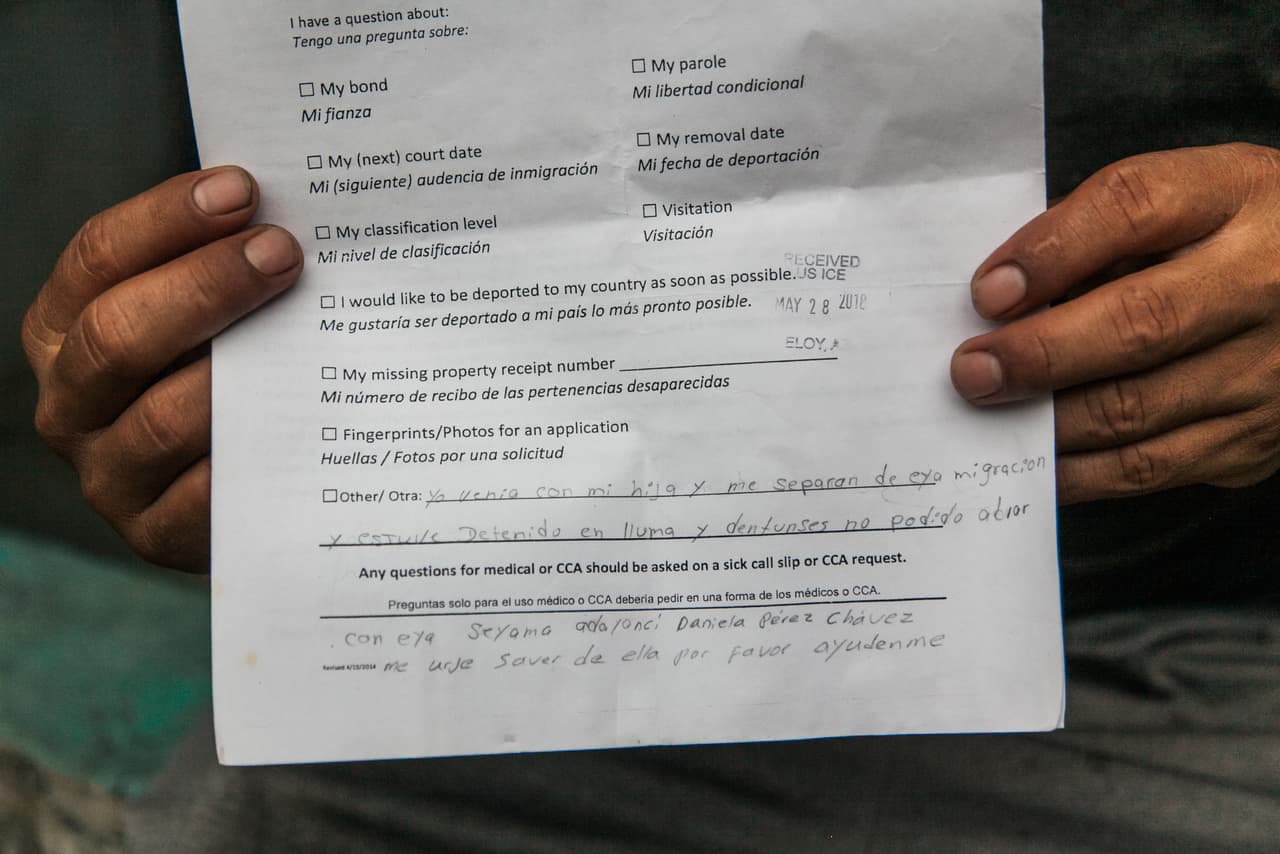 I have a question about:
Tengo una pregunta sobre:
☐ My bond
Mi fianza
☐ My parole
Mi libertad condicional
☐ My (next) court date
Mi (siguiente) audencia de inmigración
☐ My removal date
Mi fecha de deportación
☐ My classification level
Mi nivel de clasificación
☐ Visitation
Visitación
☐ I would like to be deported to my country as soon as possible.
Me gustaría ser deportado a mi país lo más pronto posible.
RECEIVED
US ICE
MAY 28 2018
ELOY,
☐ My missing property receipt number
Mi número de recibo de las pertenencias desaparecidas
☐ Fingerprints/Photos for an application
Huellas / Fotos por una solicitud
☐ Other/ Otra: yo venia con mi hija y me separan de eya migracion
y estuve Detenido en lluma y dentunses no podido ablar
Any questions for medical or CCA should be asked on a sick call slip or CCA request.
Preguntas solo para el uso médico o CCA deberia pedir en una forma de los médicos o CCA.
con eya Seyama Daniela Pérez Chávez
Revised 4/15/2014 me urje saver de ella por favor ayudenme